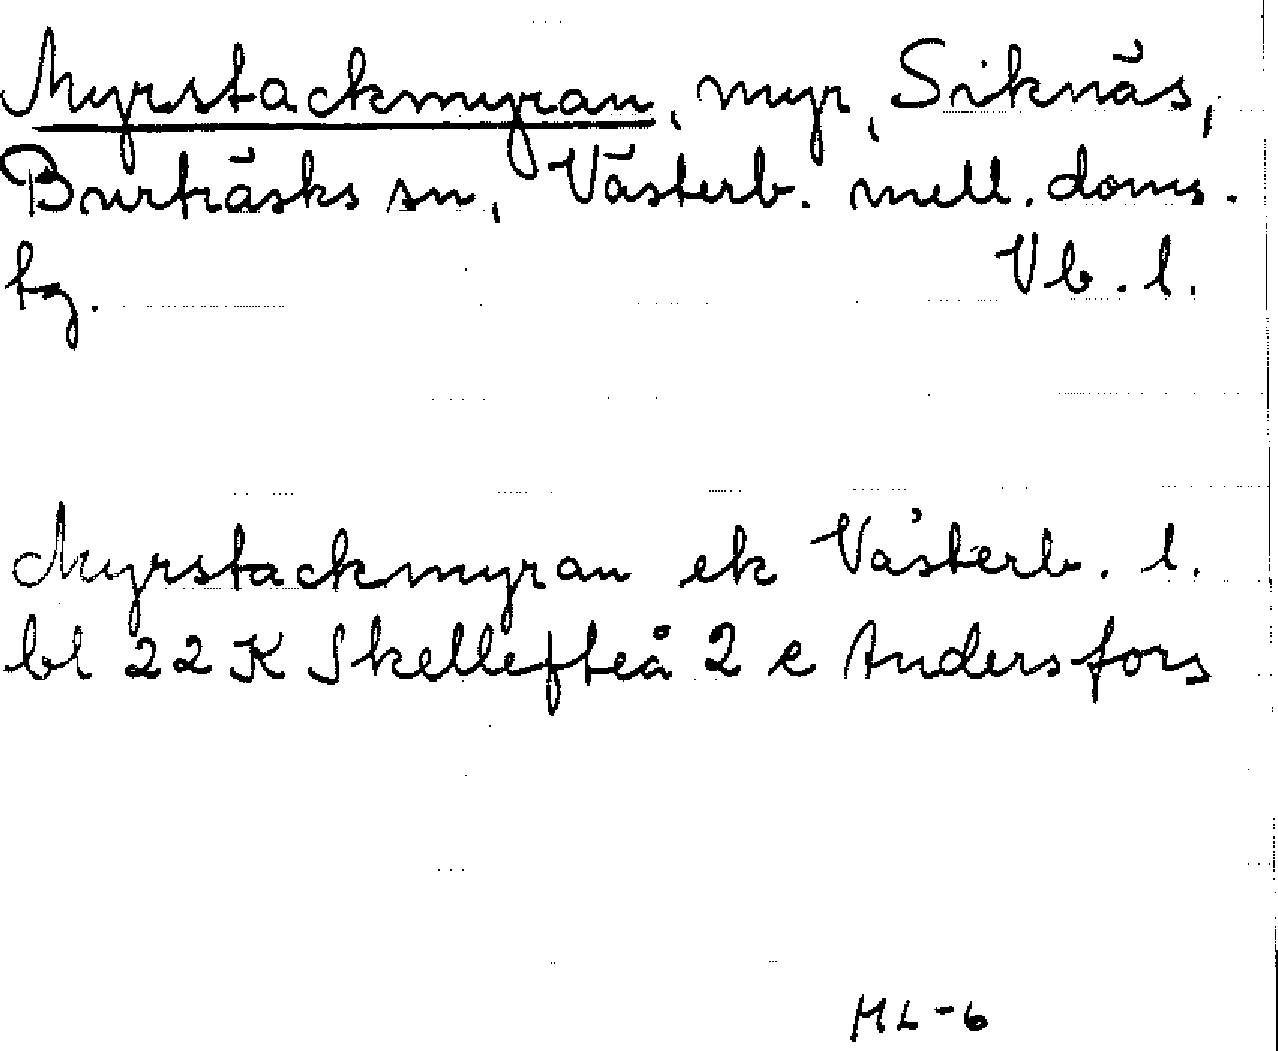 Myrstackmyran, myr, Siknäs,
Burträsks sn, Västerb. mell. doms.
tg. Vb. l.
Myrstackmyran ek Västerb. l.
bl 22 K Skellefteå 2 e Andersfors
HL-6